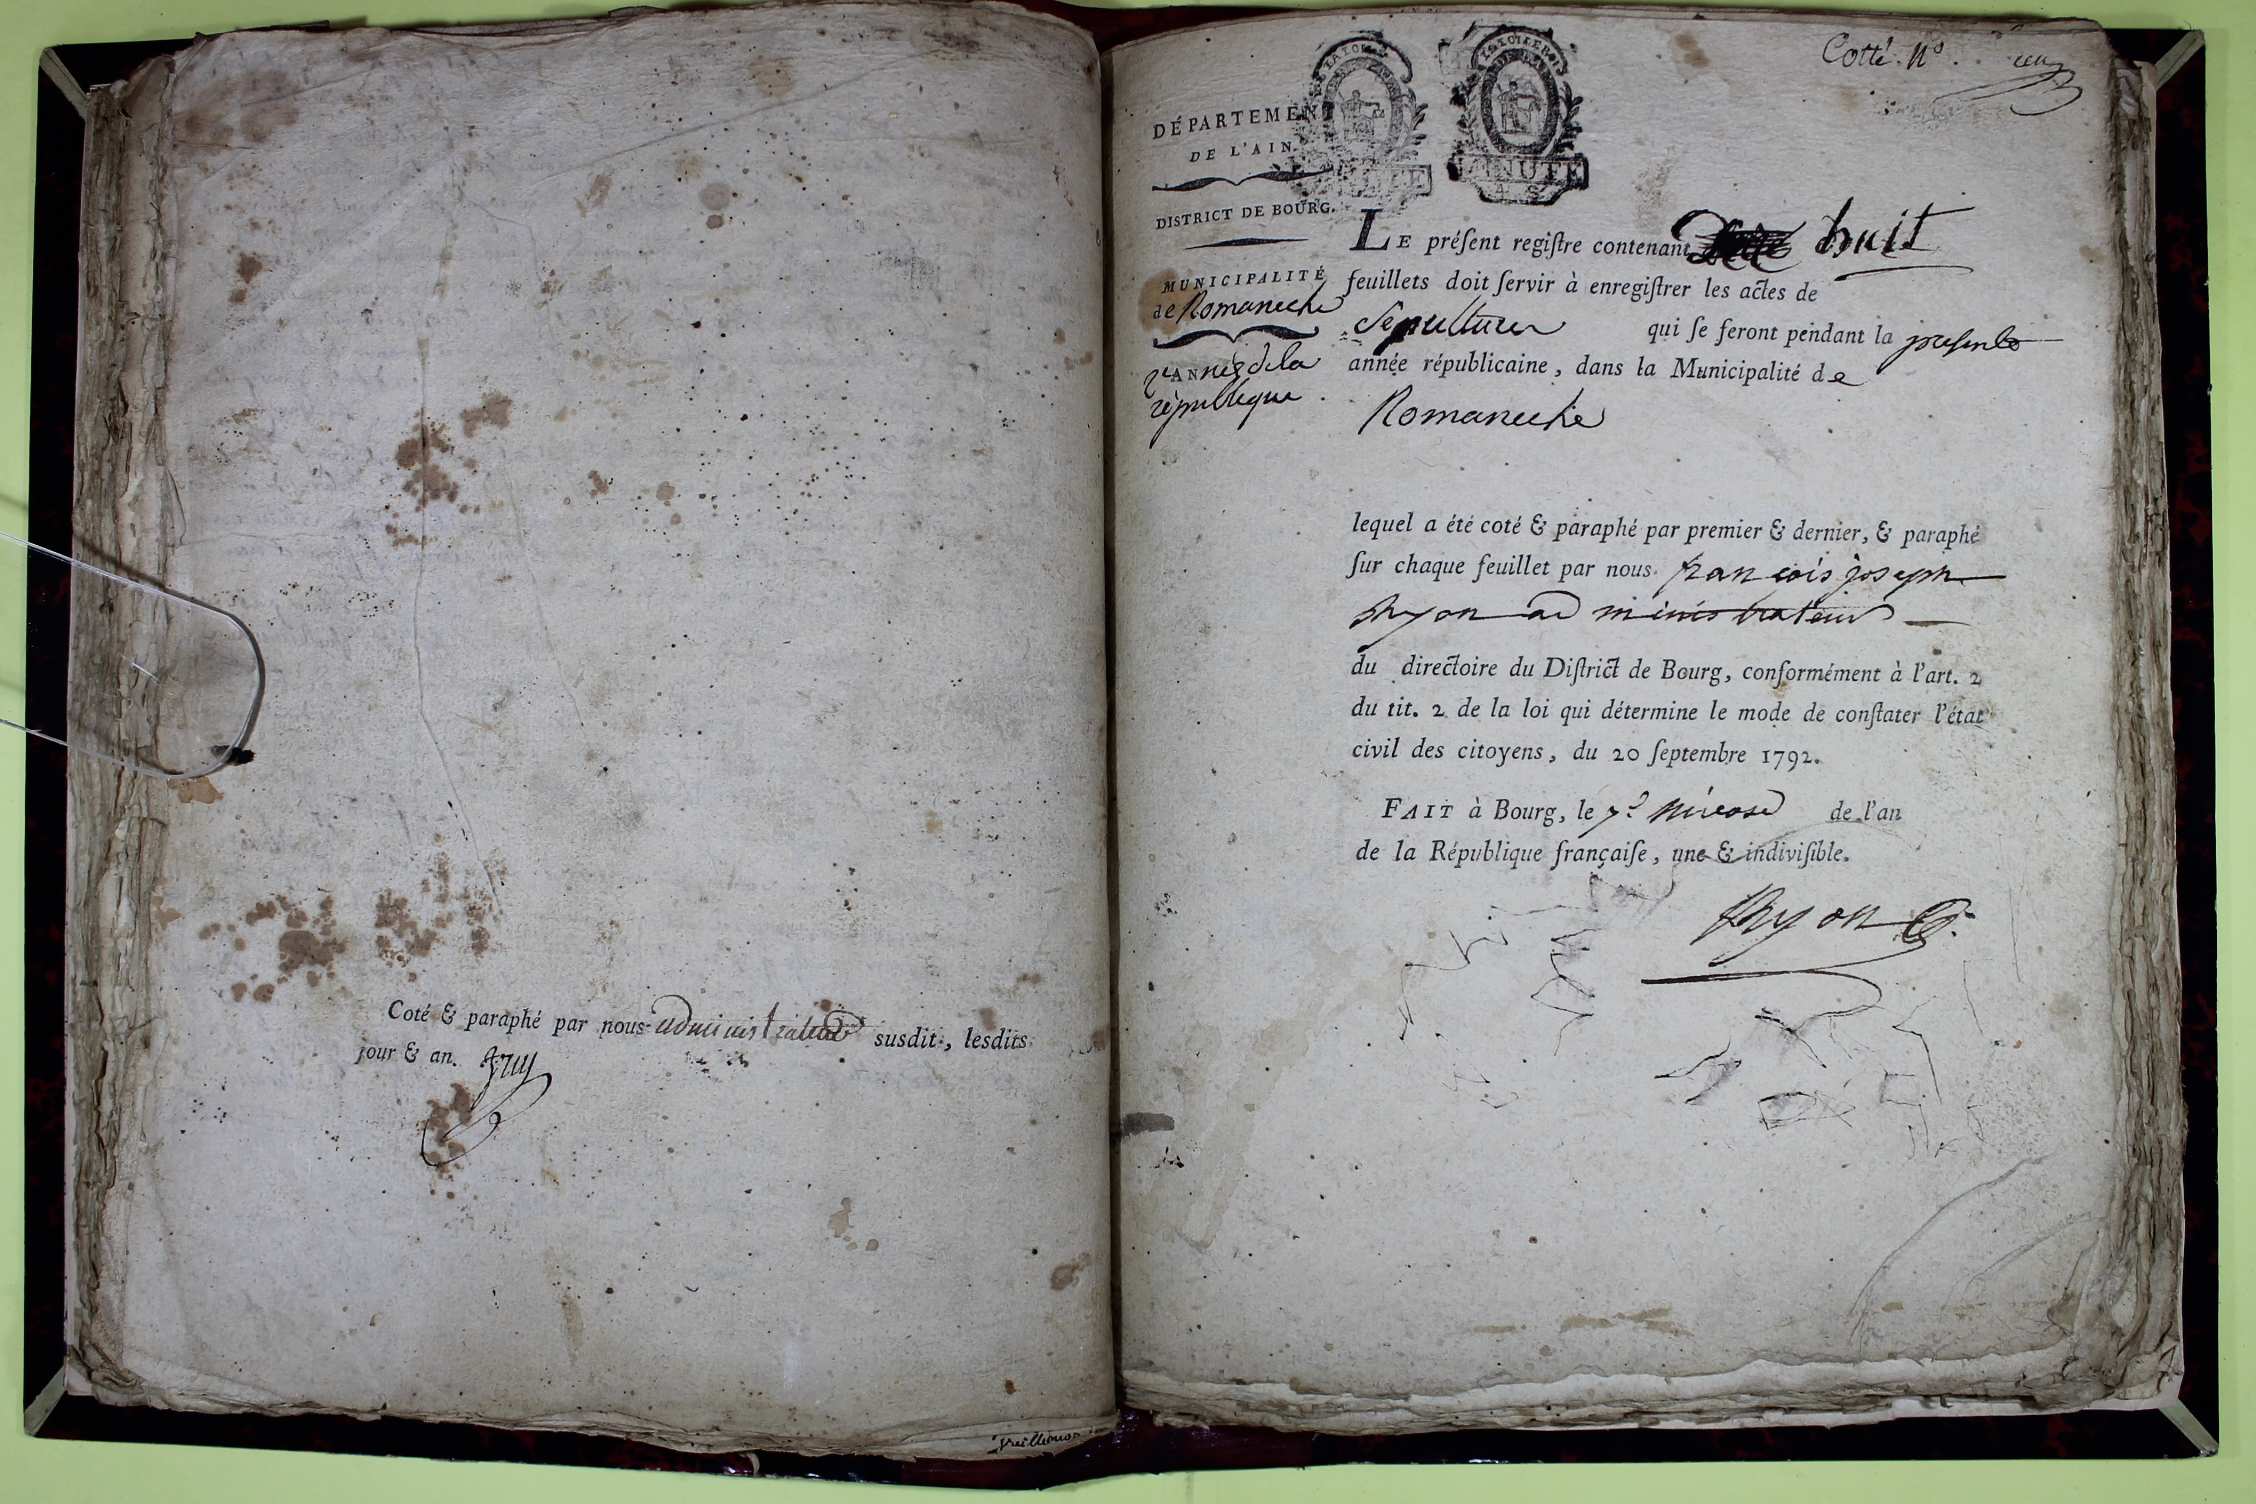 Coté & paraphé par nous administrateur susdit, lesdits
jour & an.
Cotté. No. un
DÉPARTEMENT
DE L'AIN.
DISTRICT DE BOURG.
MUNICIPALITÉ
de Romaneche
2e ANnée de la
republique.
MINUTE
4. S
LE préſent regiſtre contenant huit
feuillets doit ſervir à enregiſtrer les actes de
Sepultures qui ſe feront pendant la presente
année républicaine, dans la Municipalité de
Romaneche
lequel a été coté & paraphé par premier & dernier, & paraphé
ſur chaque feuillet par nous françois joseph
administrateur
du directoire du Diſtrict de Bourg, conformément à l'art. 2
du tit. 2 de la loi qui détermine le mode de conſtater l'état
civil des citoyens, du 20 ſeptembre 1792.
FAIT à Bourg, le nivose de l'an
de la République françaiſe, une & indiviſible.